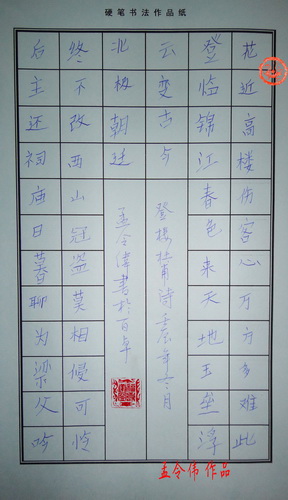 硬笔书法作品纸
花近高楼伤客心万方多难此
登临锦江春色来天地玉垒浮
云变古今
登楼杜甫诗壬辰年冬月
北极朝廷
孟令偉書於百卓
终不改西山冦盗莫相侵可怜
后主还祠庙日暮聊为梁父吟
孟令伟 作品